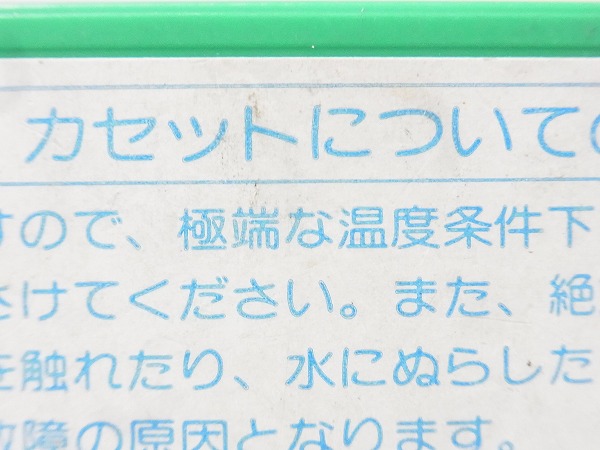 カセットについて
すので、極端な温度条件下
さけてください。また、絶
を触れたり、水にぬらした
故障の原因となります。